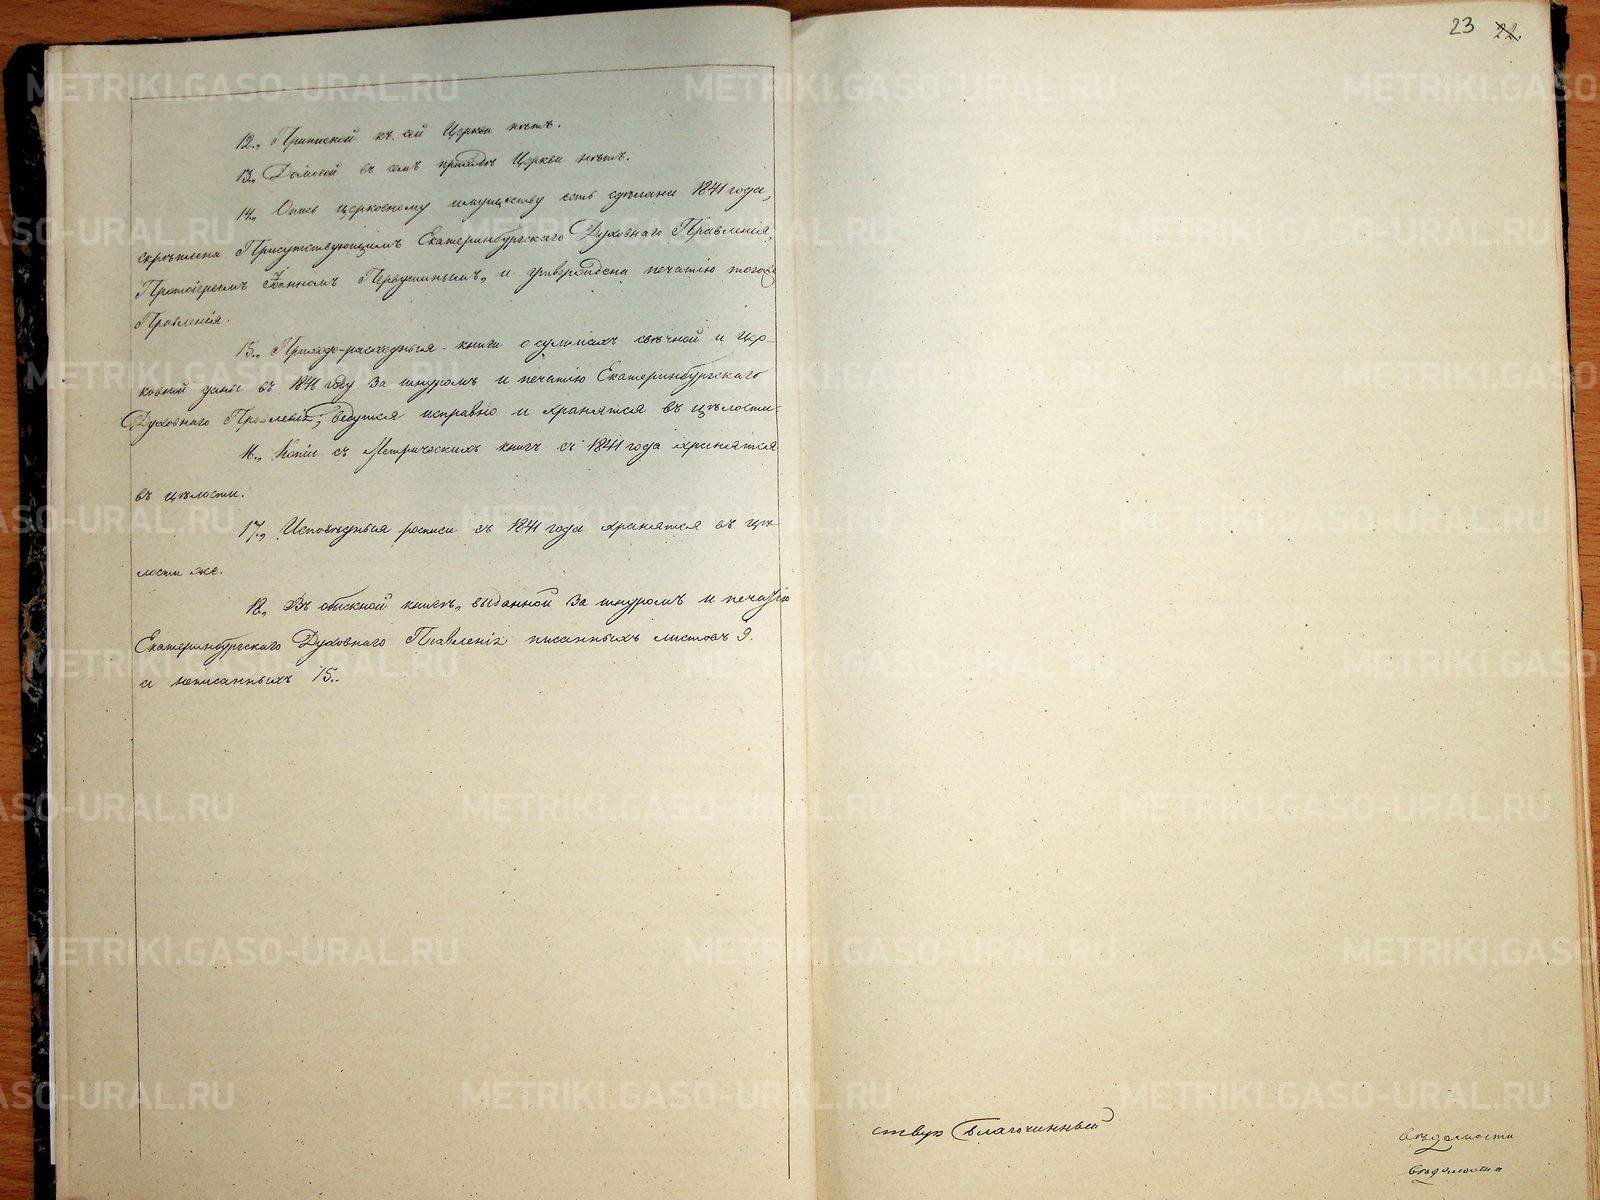 12., Приписной къ сей Церкви нѣтъ.
13., Домовой въ семъ приходѣ Церкви нѣтъ.
14., Опись церковному имуществу есть сдѣлана 1841 года,
скрѣплена Присутствующимъ Екатеринбургскаго Духовнаго Правленія,
Протоіереемъ Іоанномъ и утверждена печатію того
Правленія.
15., Приходо-расходныя книги о суммахъ свѣчной и цер-
ковной даны въ 1841 году за шнуромъ и печатію Екатеринбургскаго
Духовнаго Правленія, ведутся исправно и хранятся въ цѣлости.
16., Копіи съ Метрическихъ книгъ съ 1841 года хранятся
въ цѣлости.
17., Исповѣдныя росписи съ 1841 года хранятся въ цѣ-
лости же.
18., Въ обыскной книгѣ, выданной за шнуромъ и печатію
Екатеринбургскаго Духовнаго Правленія писанныхъ листовъ 9.
а неписанныхъ 15..
23 22.
ствую Благочинный
вѣдомости
вѣдомости
METRIKI.GASO-URAL.RU